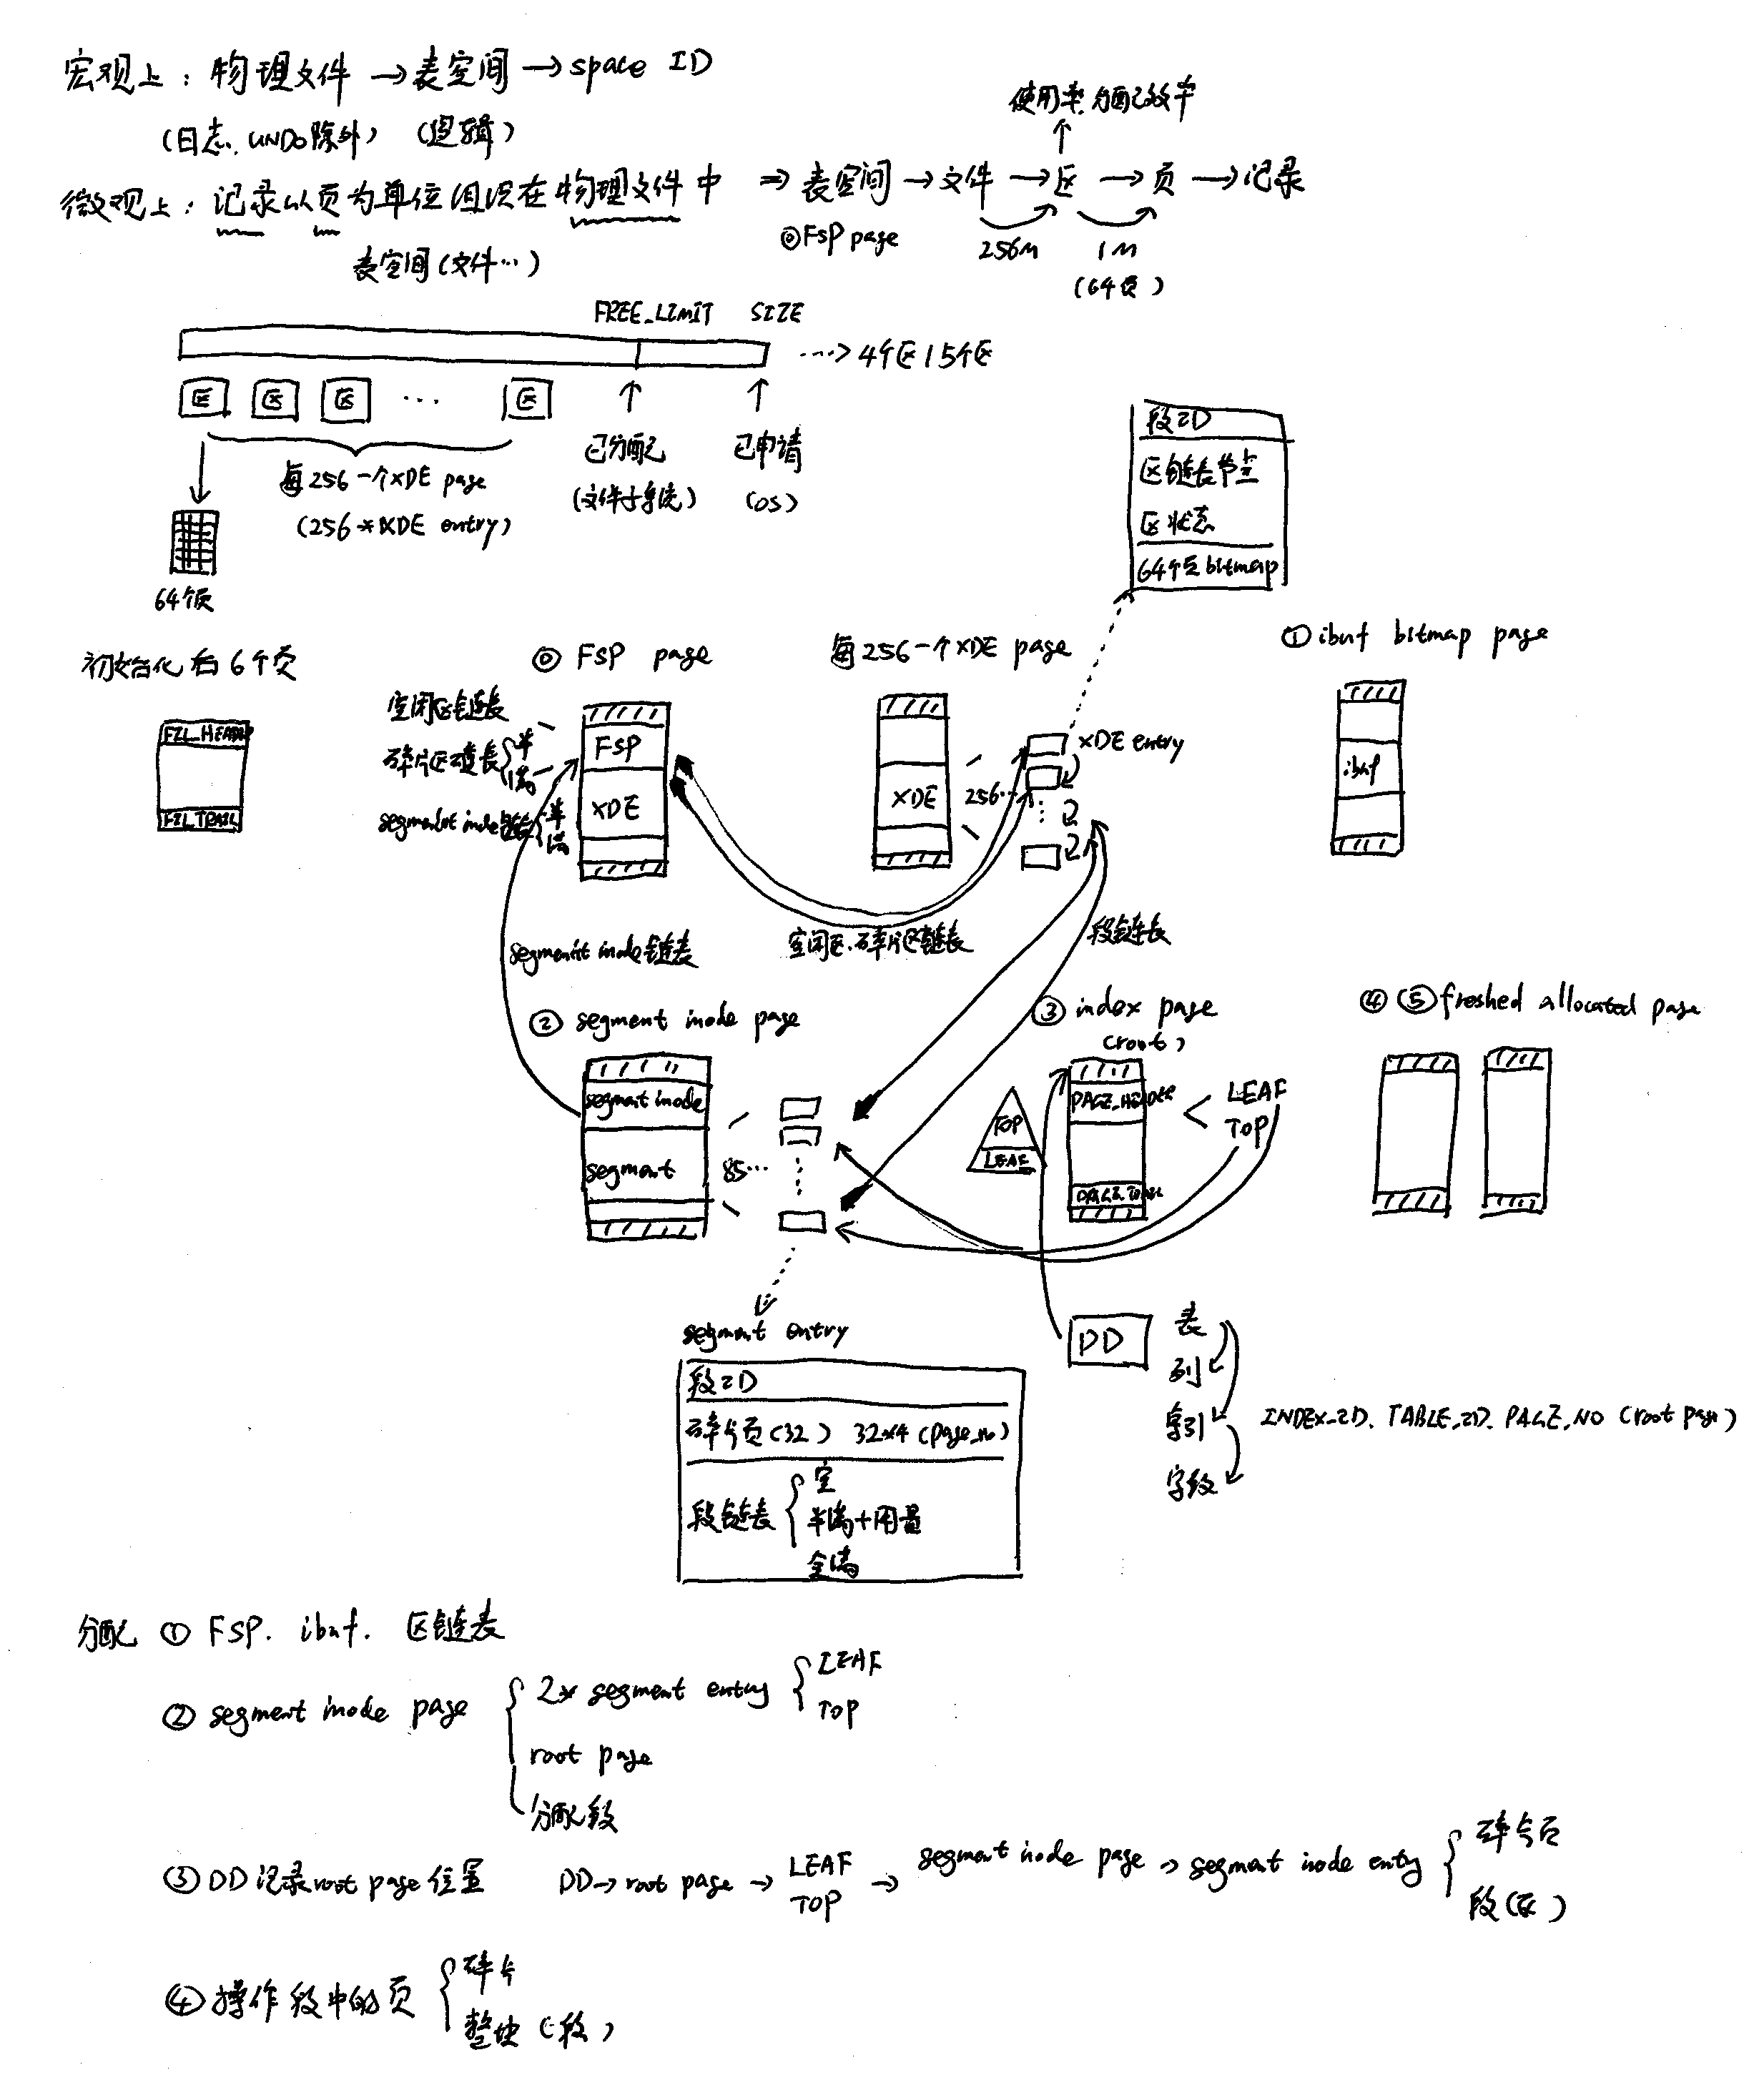 宏观上：物理文件 → 表空间 → space ID
(日志、UNDO除外) (逻辑)
使用率、分配效率
微观上：记录以页为单位组织在物理文件中 ⇒ 表空间 → 文件 → 区 → 页 → 记录
⓪FSP page 256M 1M
(64页)
表空间(文件…)
FREE_LIMIT SIZE
…> 4个区/5个区
区 区 区 … 区
已分配 已申请
(文件子系统) (OS)
每256一个XDE page
(256*XDE entry)
64个页
段ID
区链表节点
区状态
64个页bitmap
初始化后6个页
FIL_HEADER
FIL_TRAIL
⓪ FSP page
空闲区链表
碎片区链表{半 满
segment inode链表{半 满
FSP
XDE
每256一个XDE page
XDE
256…
XDE entry
① ibuf bitmap page
ibuf
segment inode链表
空闲区、碎片区链表
段链表
② segment inode page
segment inode
segment
85…
③ index page
(root)
PAGE_HEADER
LEAF
TOP
TOP
LEAF
④ ⑤ freshed allocated page
segment entry
段ID
碎片页(32) 32*4(page_no)
段链表{空
半满+用量
全满
DD
表
列
索引 INDEX_ID、TABLE_ID、PAGE_NO (root page)
字段
分配 ① FSP. ibuf. 区链表
② segment inode page { 2* segment entry { LEAF
TOP
root page
分配段
③ DD记录root page位置 DD→root page → LEAF
TOP → segment inode page → segment inode entry { 碎片页
段(区)
④ 操作段中的页 { 碎片
整块(段)